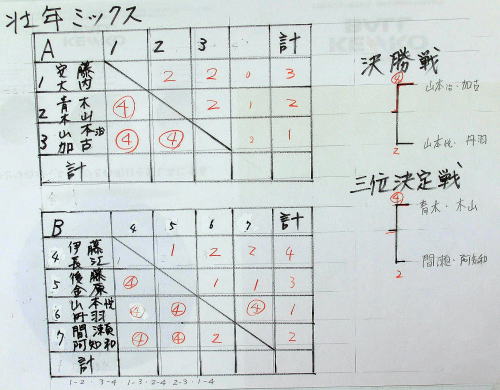 壮年ミックス
A 1 2 3 計
1 安藤 大内 2 2 0 3
2 青木 木山 ④ 2 1 2
3 山本治 加古 ④ ④ 2 1
計
決勝戦
④ 山本治・加古
2 山本悦・丹羽
三位決定戦
④ 青木・木山
2 間瀬・阿知和
B 4 5 6 7 計
4 伊藤 長江 1 2 2 4
5 後藤 金原 ④ 1 1 3
6 山本悦 丹羽 ④ ④ ④ 1
7 間瀬 阿知和 ④ ④ 2 2
計
1-2・3-4 1-3・2-4 2-3・1-4